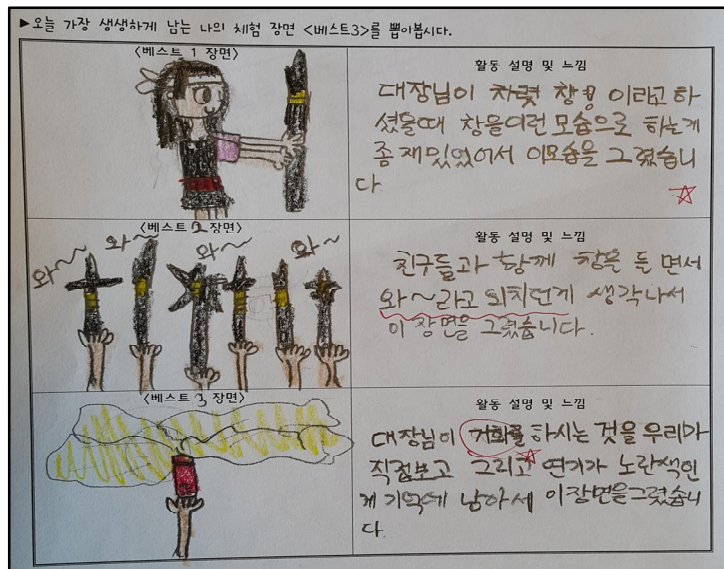 ▶오늘 가장 생생하게 남는 나의 체험 장면 <베스트3>를 뽑아봅시다.
<베스트 1 장면>
활동 설명 및 느낌
대장님이 차렷 창 이라고 하
셨을때 창을이런 모습으로 하는게
좀 재밌었어서 이모습을 그렸습니
다
<베스트 2 장면>
와~ 와~ 와~ 와~
활동 설명 및 느낌
친구들과 함께 창을 든 면서
와~라고 외치던게 생각나서
이 장면을 그렸습니다.
<베스트 3 장면>
활동 설명 및 느낌
대장님이 거화를 하시는 것을 우리가
직접보고 그리고 연기가 노란색인
게 기억에 남아서 이장면을그렸습니
다.